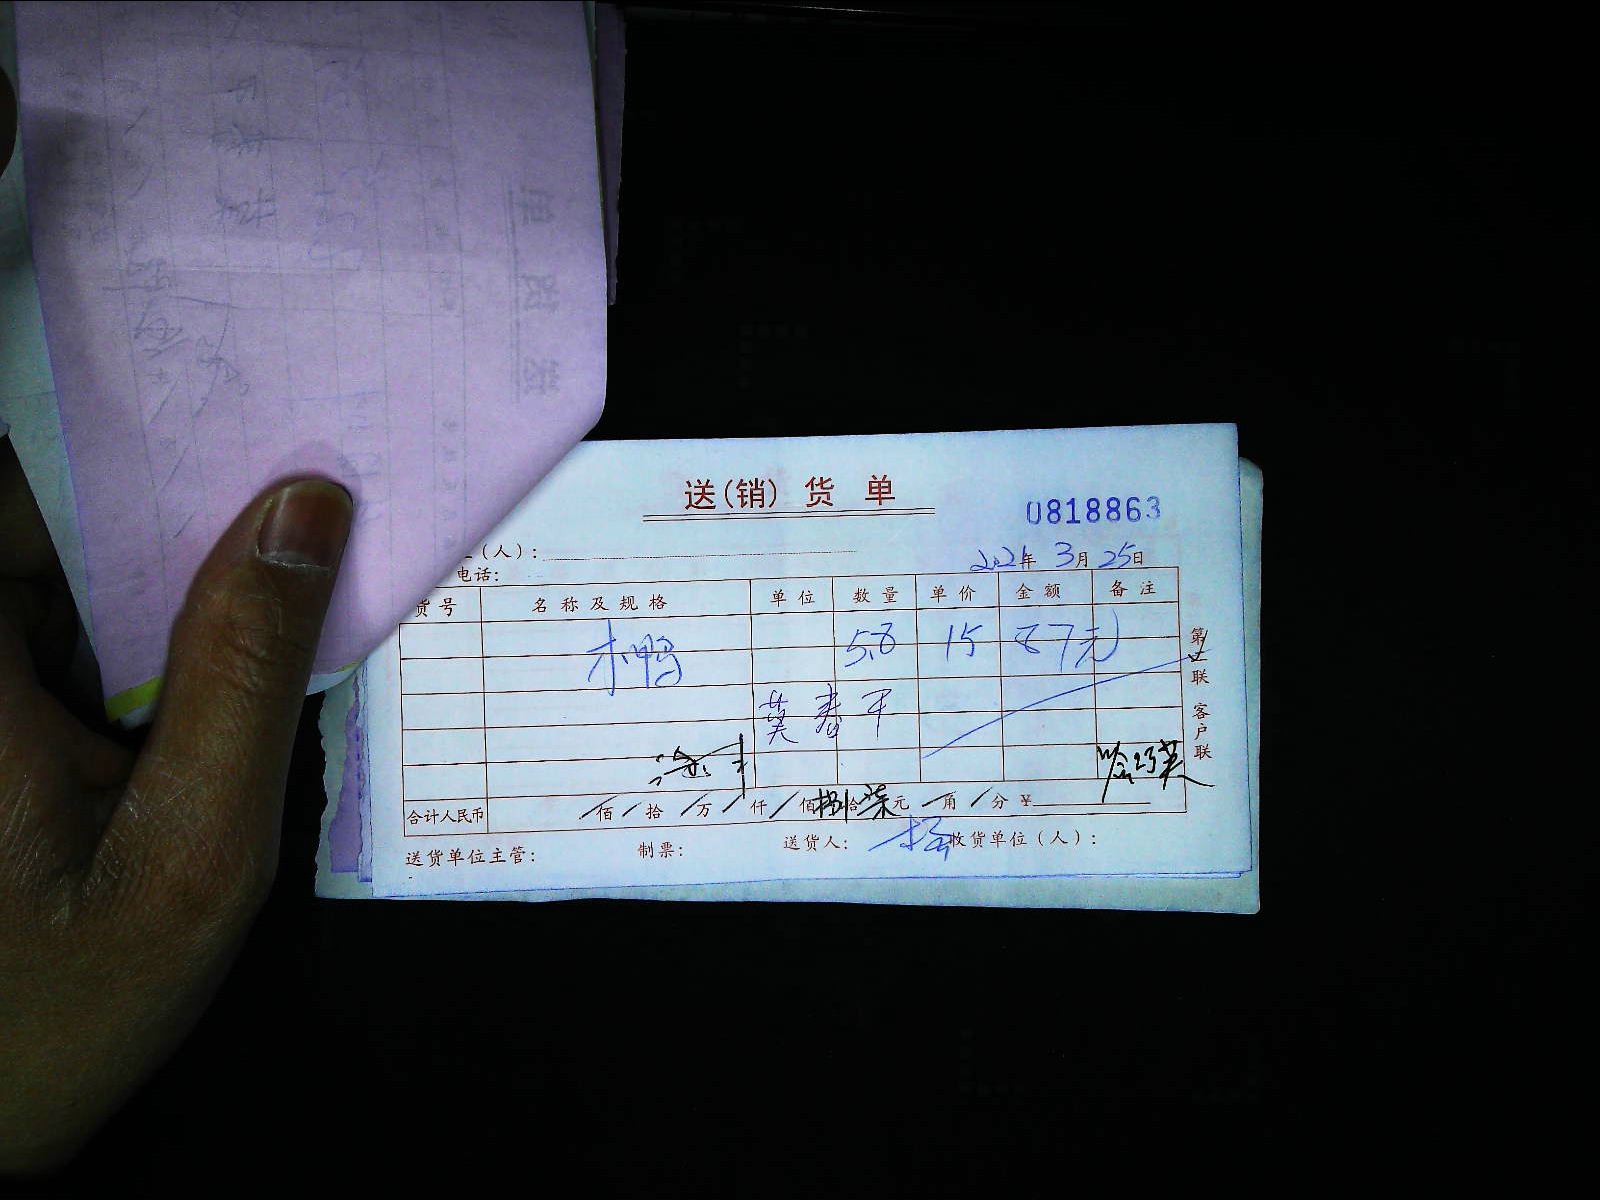 送(销)货单
0818863
(人):
2021年 3月 25日
电话:
货号 名称及规格 单位 数量 单价 金额 备注
水鸭 5.8 15 87元
第二联 客户联
合计人民币 / 佰 / 拾 / 万 / 仟 / 佰 捌 拾 柒 元 / 角 / 分 ¥
送货单位主管: 制票: 送货人: 杨 收货单位(人):